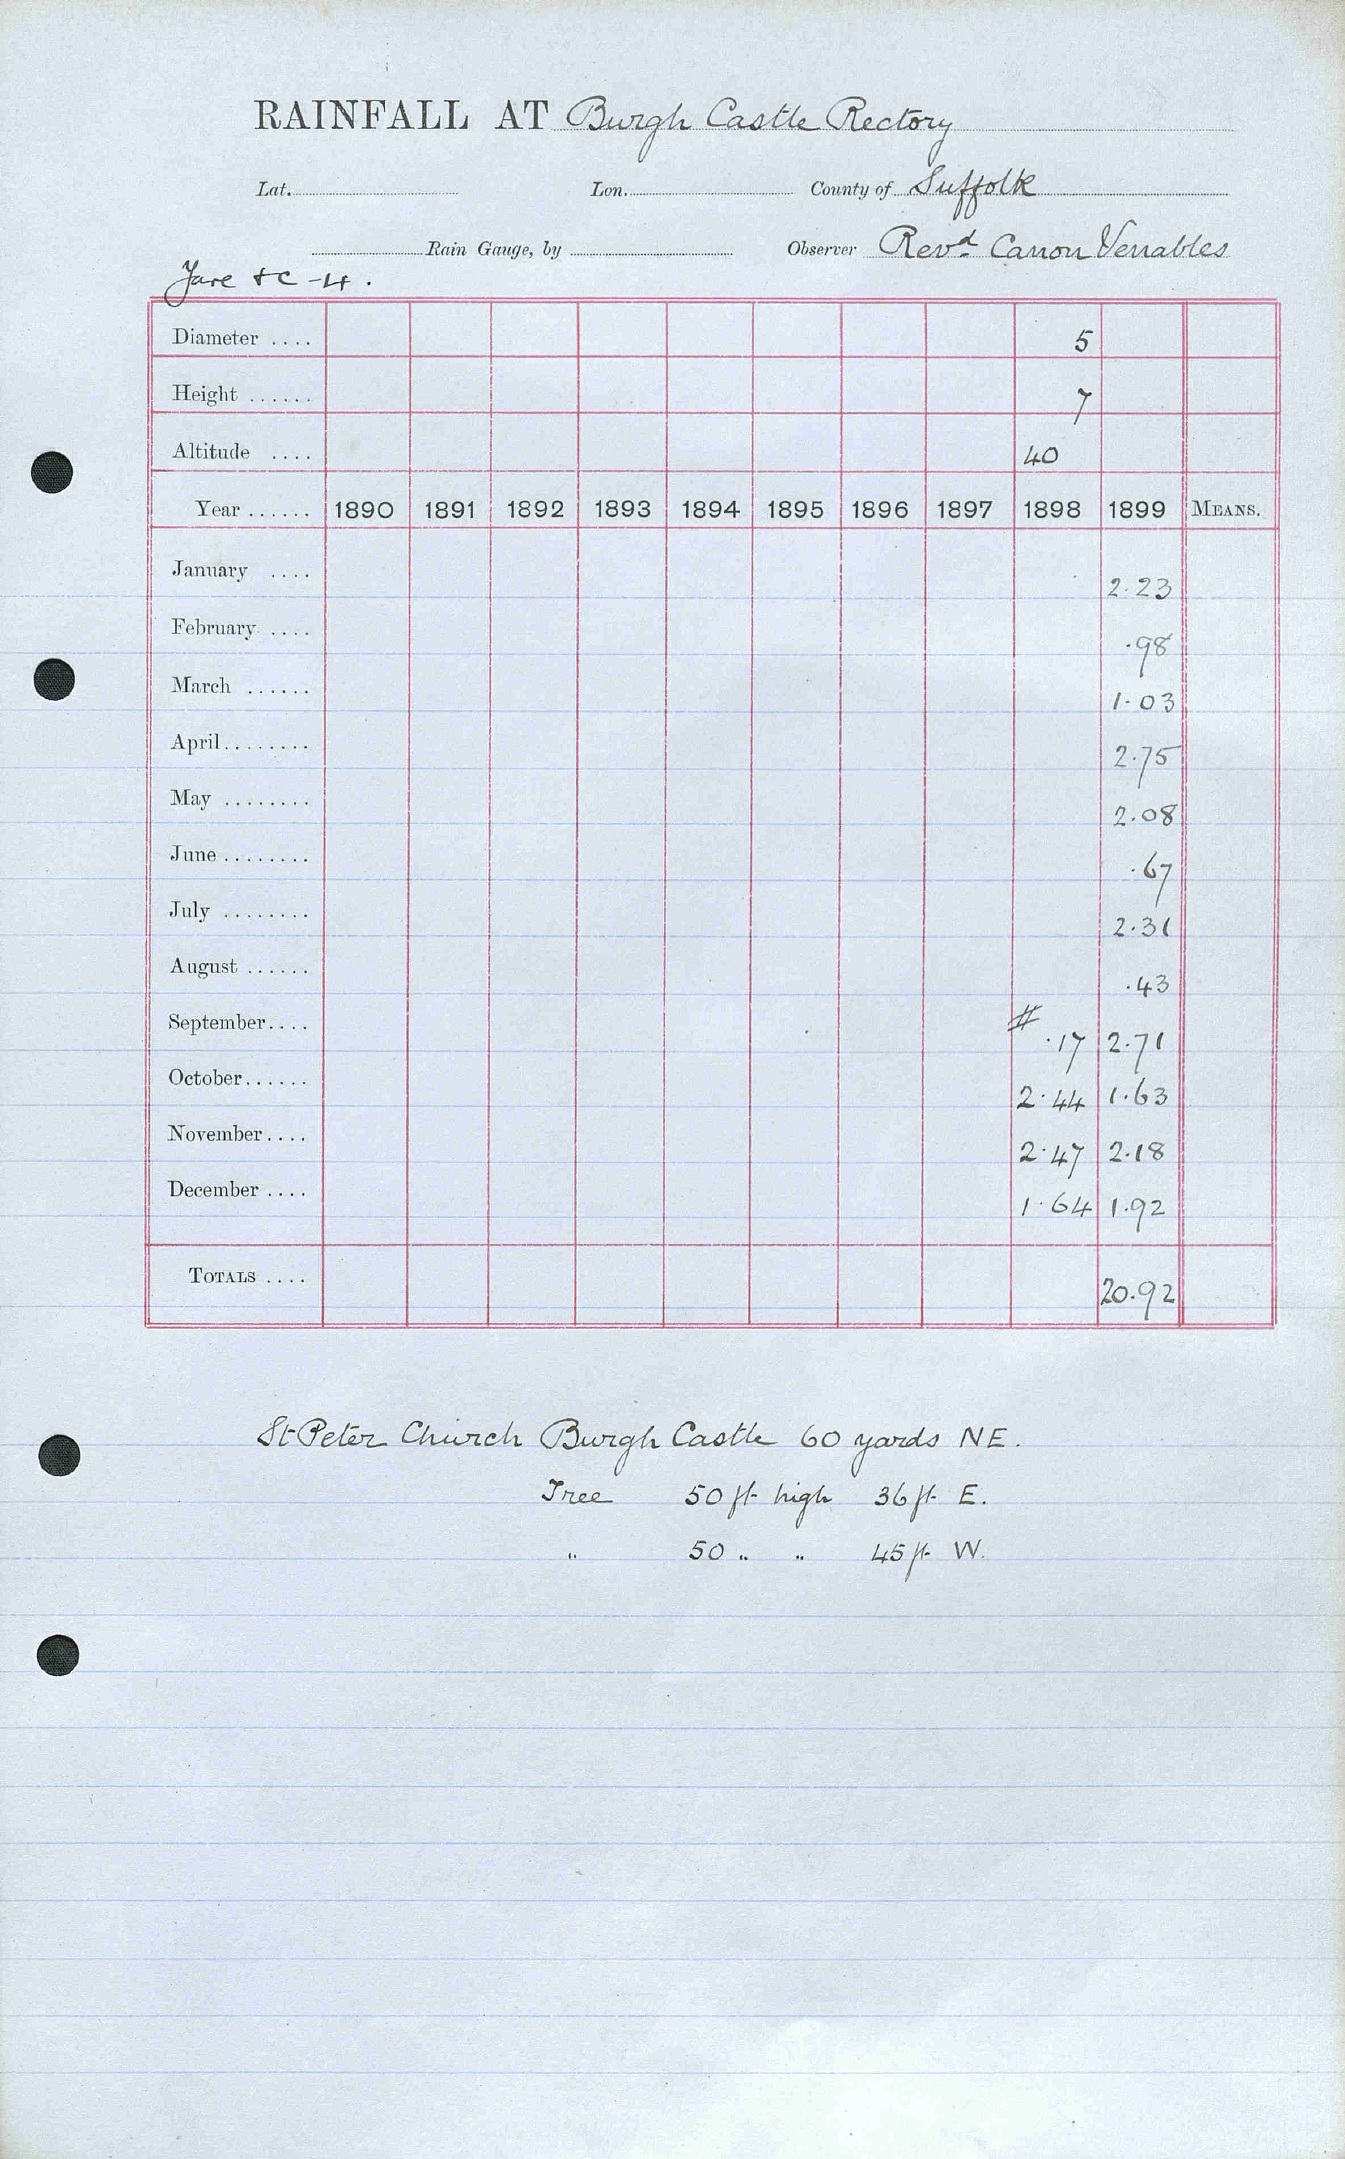 RAINFALL AT Burgh Castle Rectory
Lat. Lon. County of Suffolk
Rain Gauge, by Observer Revd. Canon Venables
Yare &c -4.
Diameter .... 5
Height ...... 7
Altitude .... 40
Year ...... 1890 1891 1892 1893 1894 1895 1896 1897 1898 1899 MEANS.
January .... 2.23
February .... .98
March ...... 1.03
April........ 2.75
May ........ 2.08
June ........ .67
July ........ 2.31
August ...... .43
September.... # .17 2.71
October...... 2.44 1.63
November.... 2.47 2.18
December .... 1.64 1.92
TOTALS .... 20.92
St Peter Church Burgh Castle 60 yards NE.
Tree 50 ft high 36 ft E.
" 50 " " 45 ft W.